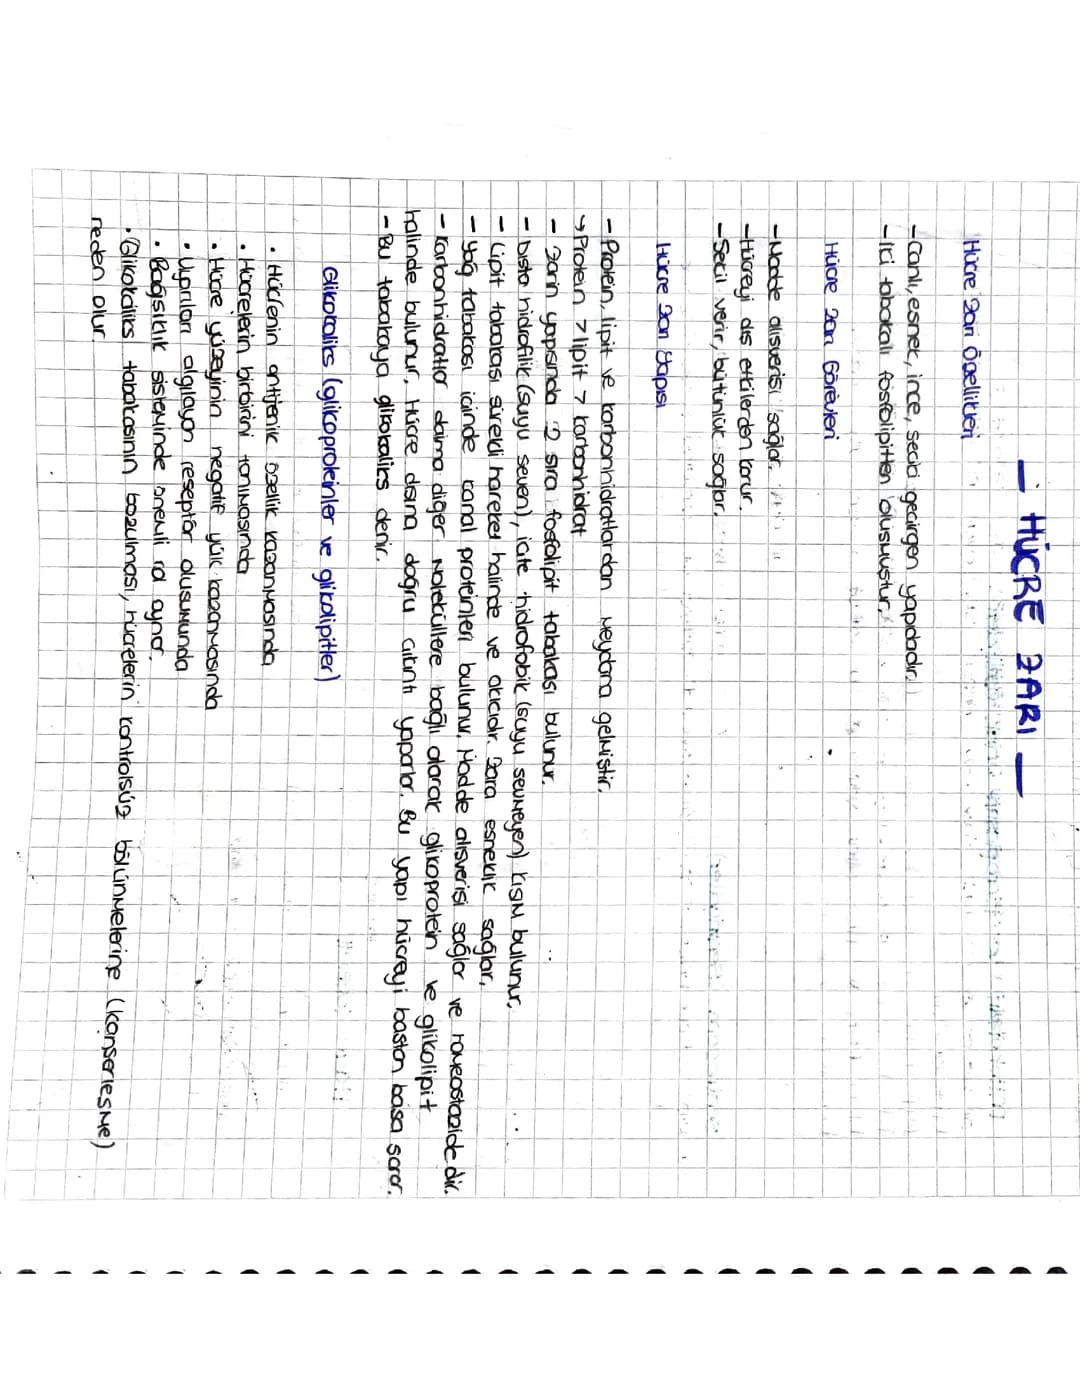 — HÜCRE ZARI —
Hücre Zarı Özellikleri
- Canlı, esnek, ince, seçici geçirgen yapıdadır.
- İki tabakalı fosfolipitten oluşmuştur.
Hücre Zarı Görevleri
- Madde alışverişi sağlar.
- Hücreyi dış etkilerden korur.
- Şekil verir, bütünlük sağlar.
Hücre Zarı Yapısı
- Protein, lipit ve karbonhidratlardan meydana gelmiştir.
↳ Protein > lipit > karbonhidrat
- Zarın yapısında 2 sıra fosfolipit tabakası bulunur.
- Dışta hidrofilik (suyu seven), içte hidrofobik (suyu sevmeyen) kısım bulunur.
- Lipit tabakası sürekli hareket halinde ve akıcıdır. Zara esneklik sağlar.
- Yağ tabakası içinde kanal proteinleri bulunur. Madde alışverişi sağlar ve homeostazide dir.
- Karbonhidratlar daima diğer moleküllere bağlı olarak glikoprotein ve glikolipit
halinde bulunur. Hücre dışına doğru çıkıntı yaparlar. Bu yapı hücreyi baştan başa sarar.
- Bu tabakaya glikokaliks denir.
Glikokaliks (glikoproteinler ve glikolipitler)
• Hücrenin antijenik özellik kazanmasında
• Hücrelerin birbirini tanımasında
• Hücre yüzeyinin negatif yük kazanmasında
• Uyarıları algılayan reseptör oluşumunda
• Bağışıklık sisteminde önemli rol oynar.
• Glikokaliks tabakasının bozulması, hücrelerin kontrolsüz bölünmelerine (kanserleşme)
neden olur.